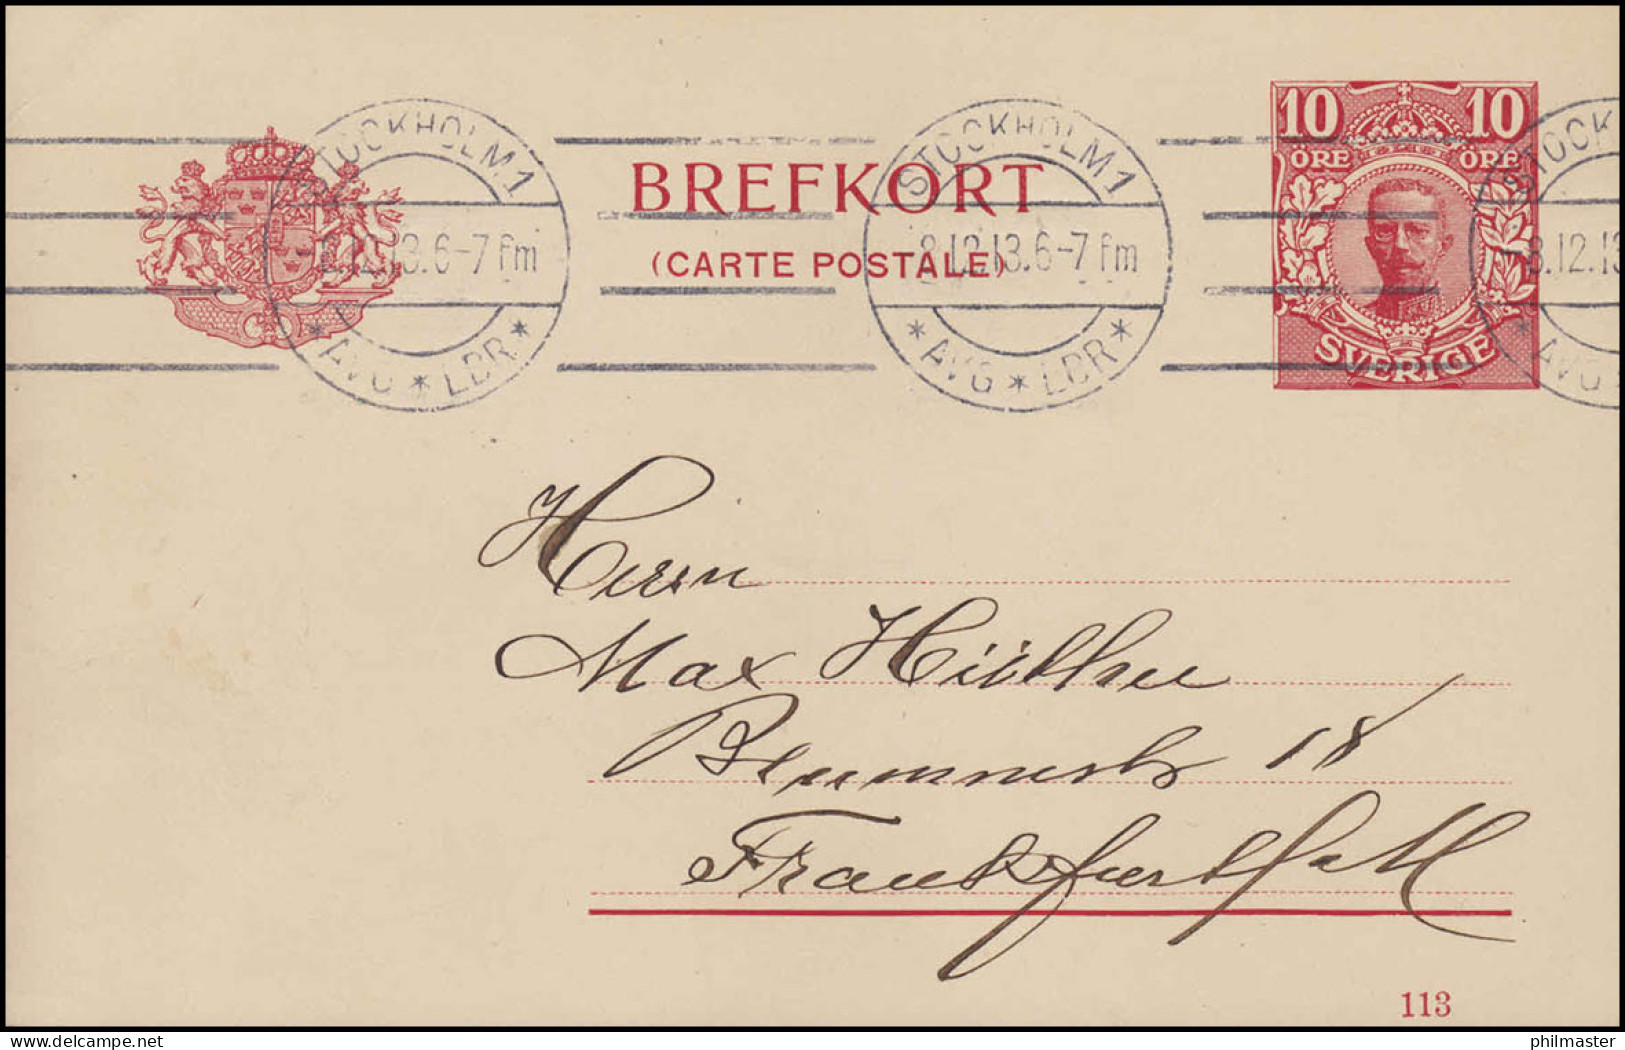 10 10
ÖRE ÖRE
SVERIGE
BREFKORT
(CARTE POSTALE)
STOCKHOLM 1
-8.12.13.6-7 fm
* AVG * LBR *
STOCKHOLM 1
-8.12.13.6-7 fm
* AVG * LBR *
STOCK
-8.12.13
* AVG *
Herrn
Max
18
Frankfurt a M
113
philmaster